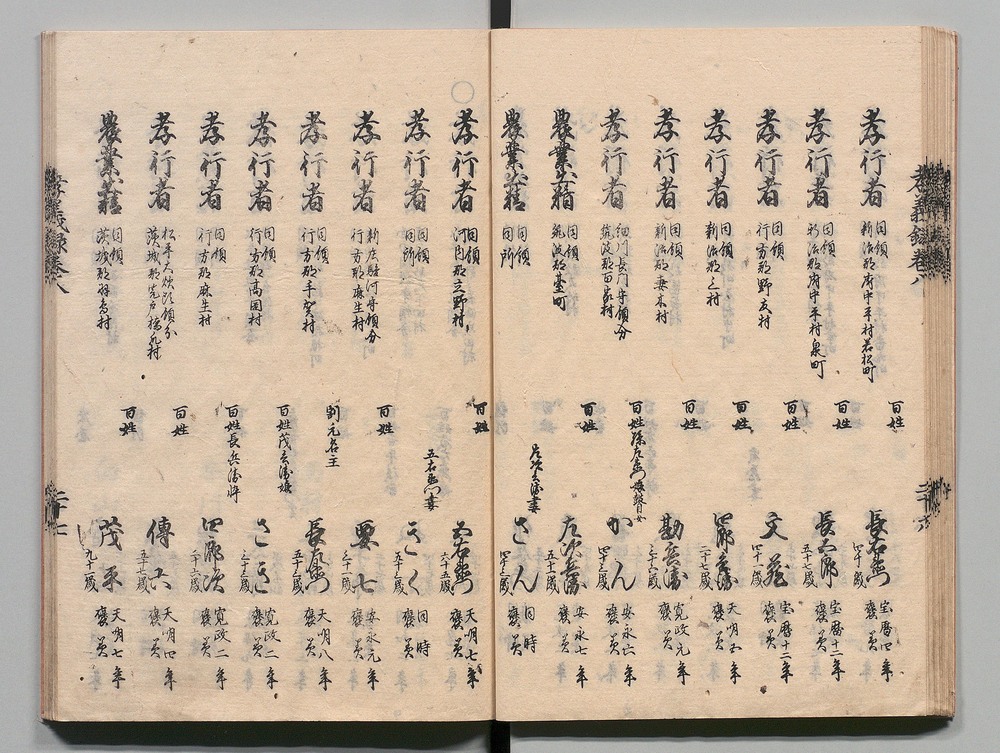 孝義録巻八
孝行者 同領 新治郡府中平村若松町 百姓 長右衛門 四十歳 宝暦四年褒美
孝行者 同領 新治郡府中平村泉町 百姓 長五郎 五十七歳 宝暦十二年褒美
孝行者 同領 行方郡野友村 百姓 文蔵 四十一歳 宝暦十二年褒美
孝行者 同領 新治郡上村 百姓 二十七歳 天明五年褒美
孝行者 同領 新治郡妻木村 百姓 勘兵衛 寛政元年褒美
孝行者 細川長門守領分 筑波郡 百姓 かん 安永六年褒美
農業出精 同領 筑波郡臺町 百姓 左次兵衛 五十一歳 安永七年褒美
農業出精 同領 同所 左次兵衛妻 さん 同時褒美
孝行者 同領 河内郡上野村 百姓 五右衛門 六十五歳 天明七年褒美
孝行者 同領 同所 五右衛門妻 きく 五十歳 同時褒美
孝行者 新庄駿河守領分 行方郡麻生村 百姓 要七 三十歳 安永元年褒美
孝行者 同領 行方郡手賀村 割元名主 長左衛門 五十二歳 天明八年褒美
孝行者 同領 行方郡高岡村 百姓茂兵衛娘 さき 三十三歳 寛政二年褒美
孝行者 同領 行方郡麻生村 百姓長兵衛忰 四郎次 三十二歳 寛政二年褒美
孝行者 松平大炊頭領分 茨城郡 百姓 傳六 五十三歳 天明四年褒美
農業出精 同領 茨城郡 百姓 茂平 九十一歳 天明七年褒美
孝義録巻八
二十七